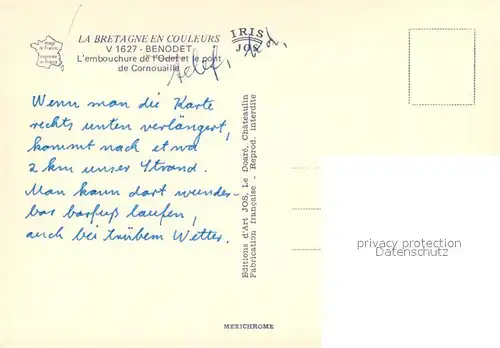 LA BRETAGNE EN COULEURS
V 1627 - BENODET
L'embouchure de l'Odet et le pont
de Cornouaille
IRIS
JOS
Wenn man die Karte
rechts unten verlängert,
kommt nach etwa
2 km unser Strand.
Man kann dort wunder-
bar barfuß laufen,
auch bei trübem Wetter.
Editions d'Art JOS, Le Doaré, Châteaulin
Fabrication française - Reprod. interdite
MEXICHROME
privacy protection
Datenschutz